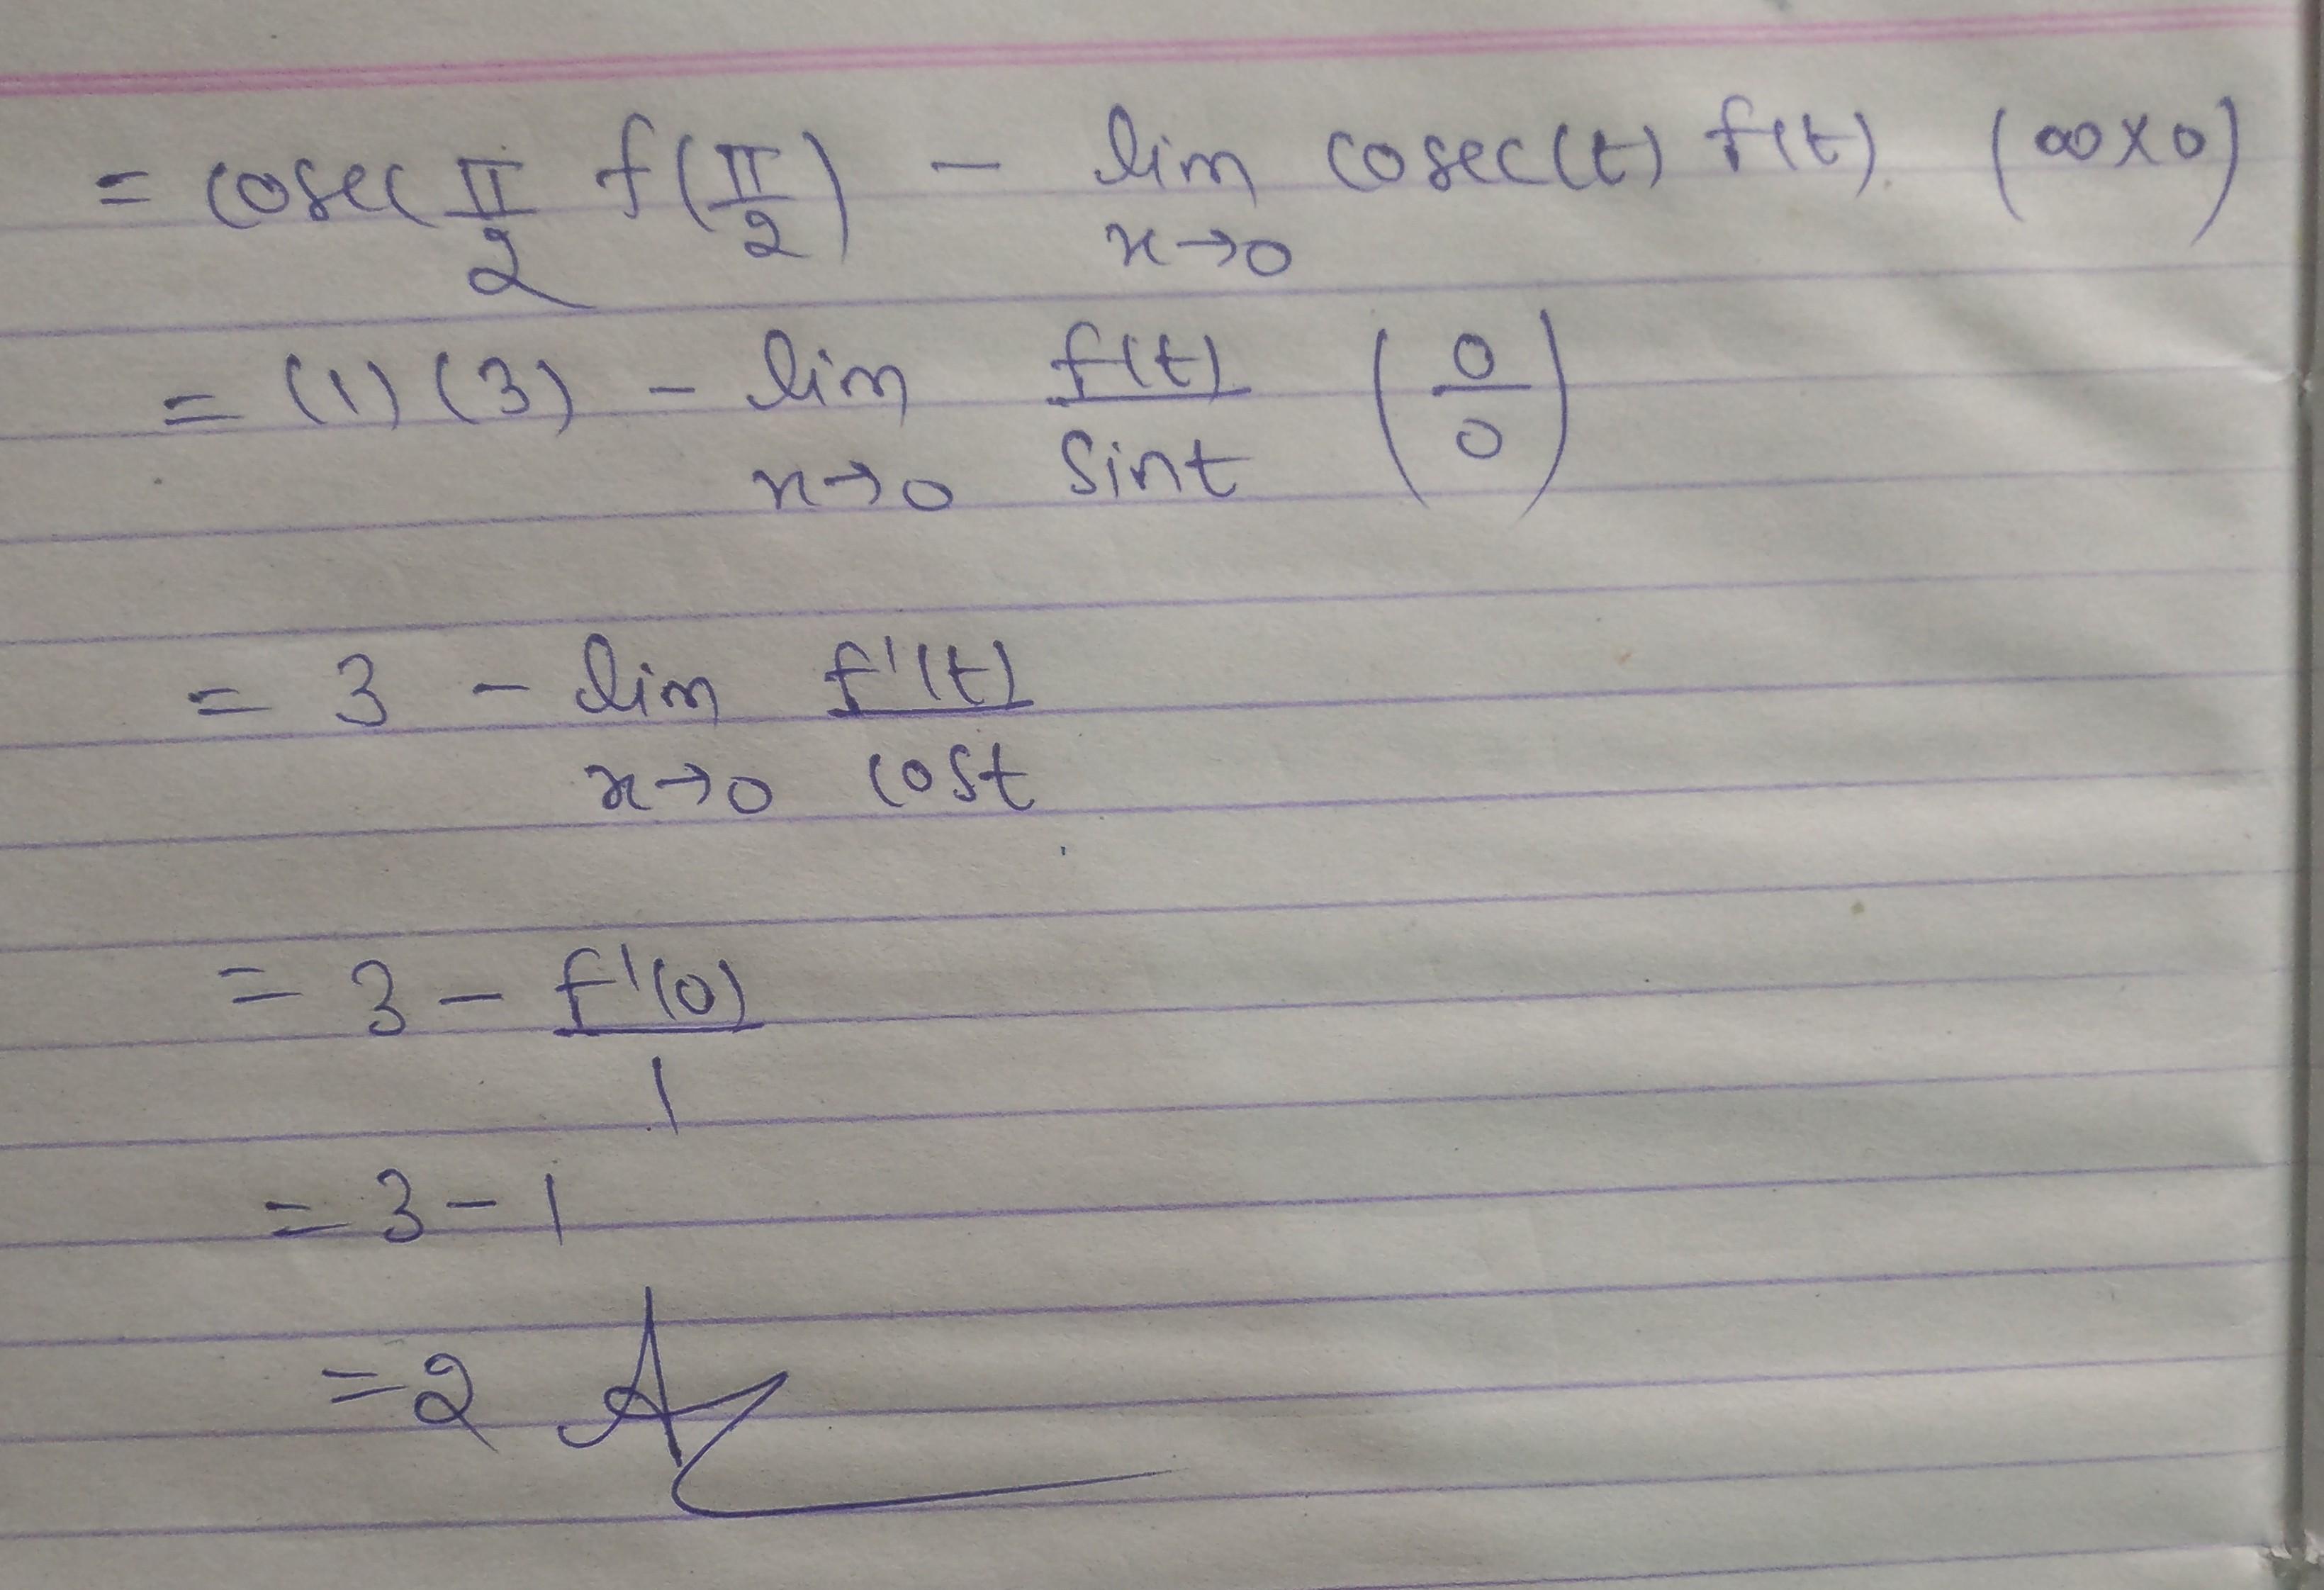 = cosec π/2 f(π/2) - lim x→0 cosec(t) f(t) (∞×0)
= (1) (3) - lim x→0 f(t)/sint (0/0)
= 3 - lim x→0 f'(t)/cost
= 3 - f'(0)/1
= 3 - 1
= 2